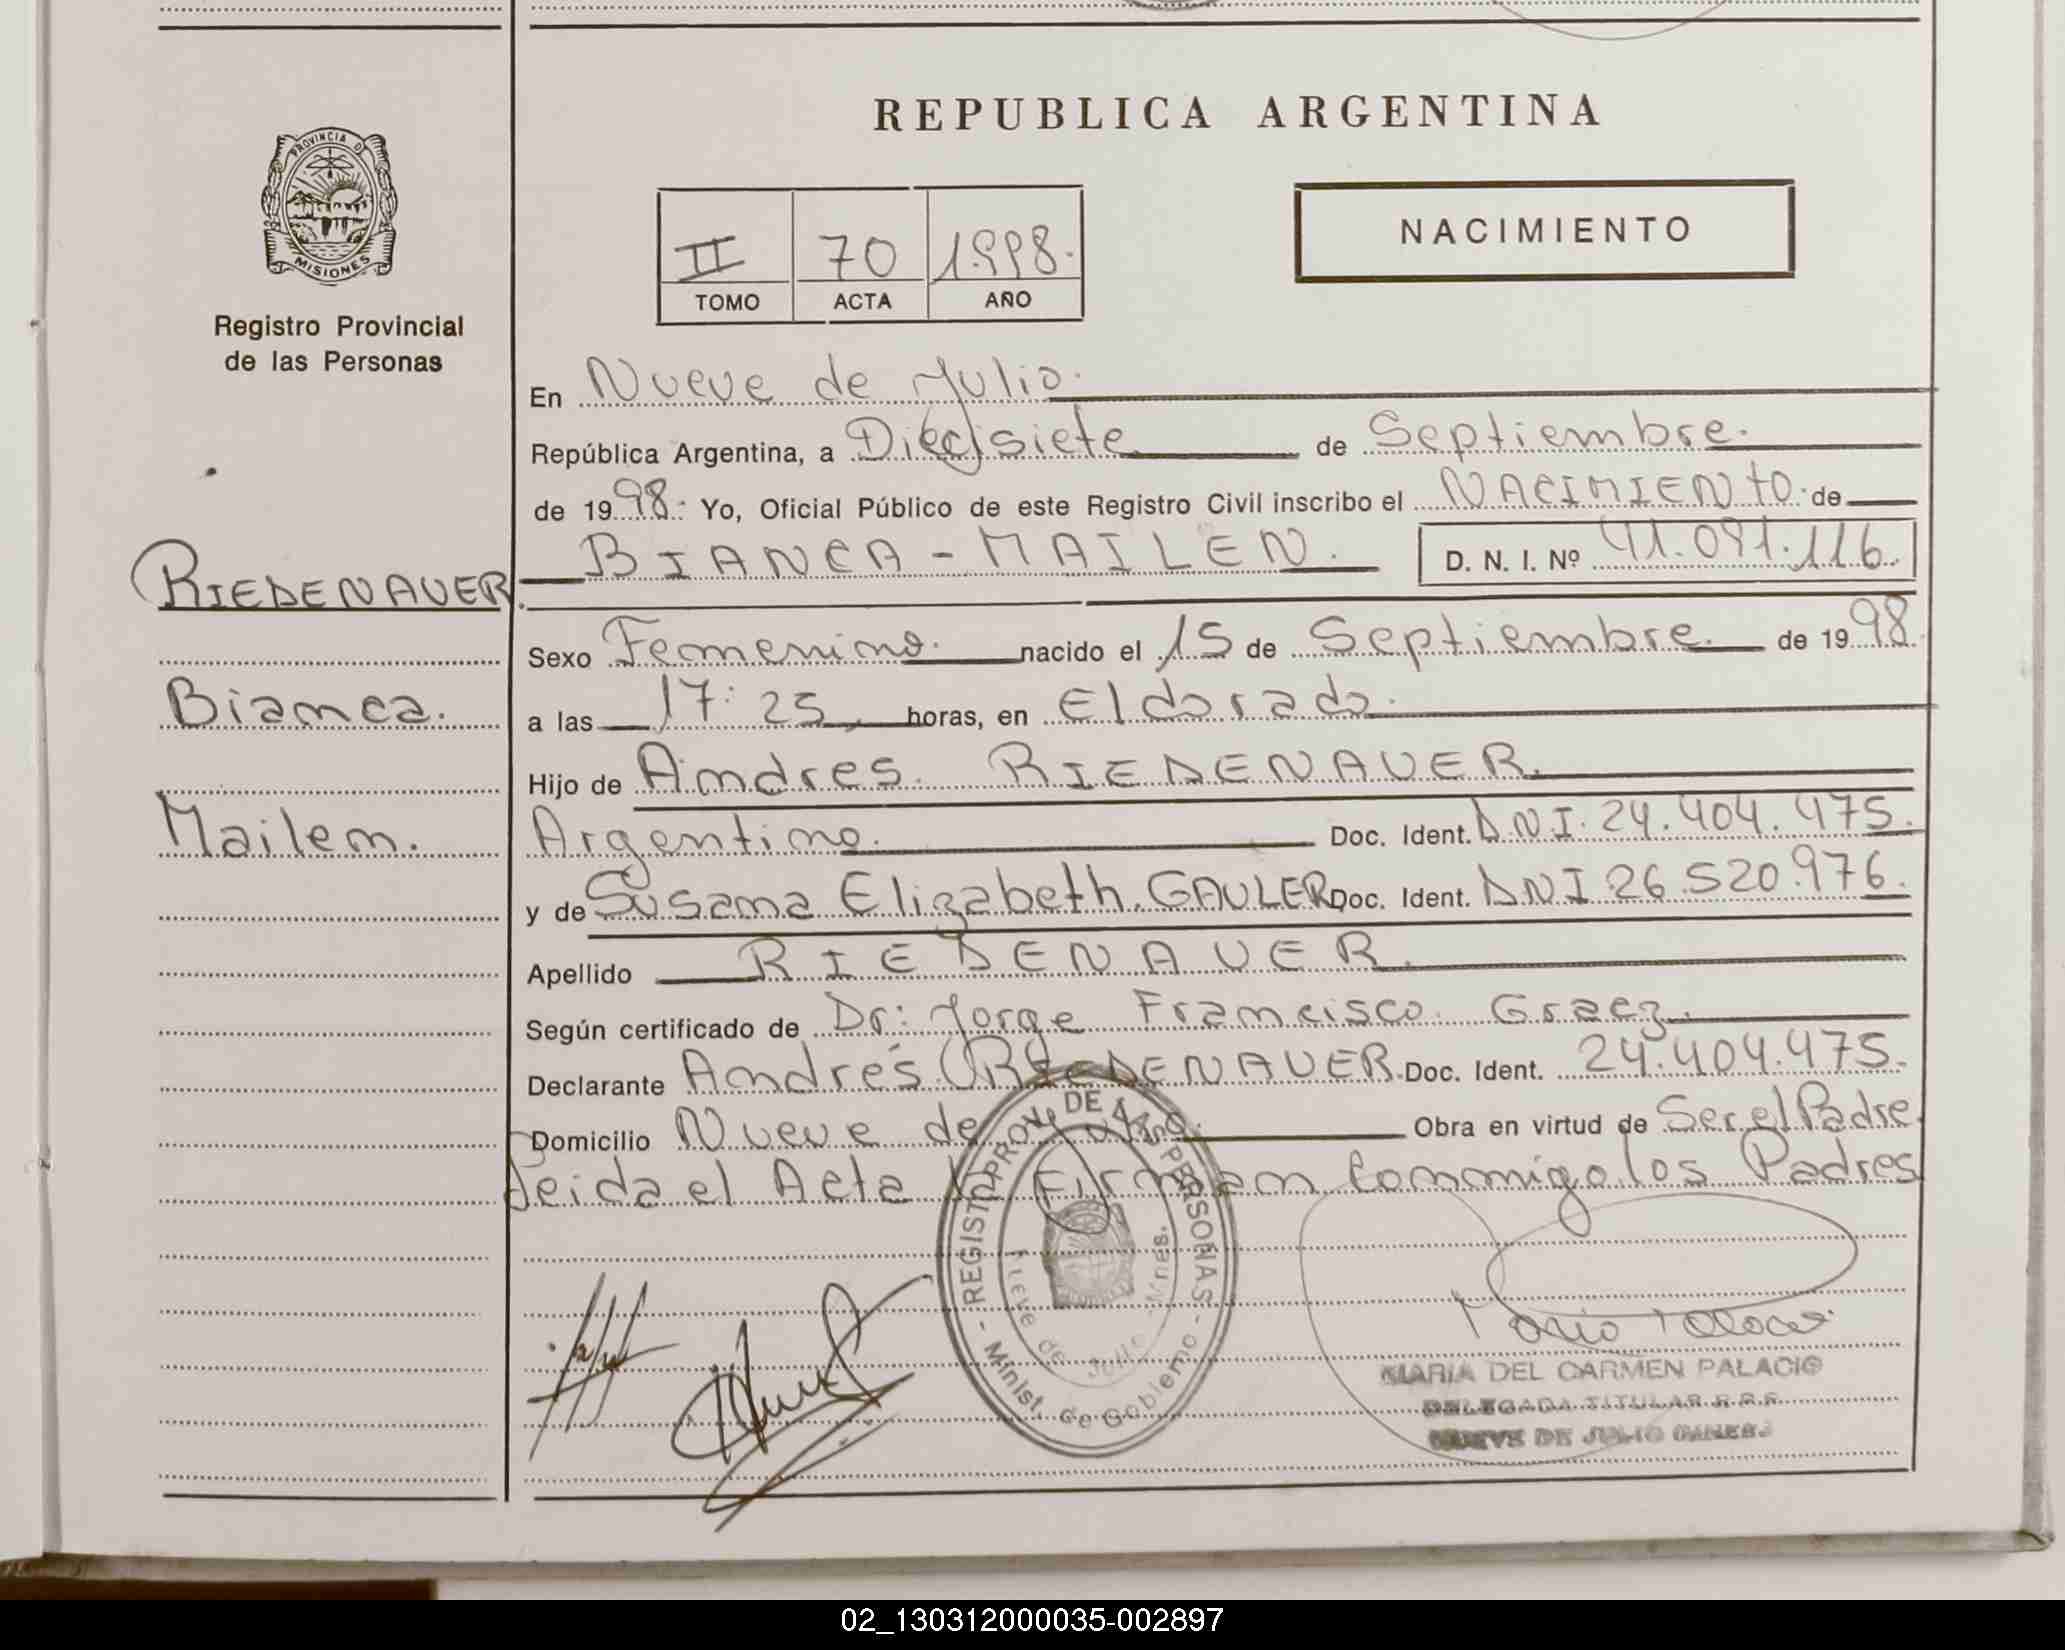 PROVINCIA D
MISIONES
Registro Provincial
de las Personas
RIEDENAUER
Bianca.
Mailen.
REPUBLICA ARGENTINA
II 70 1.998.
TOMO ACTA AÑO
NACIMIENTO
En Nueve de Julio.
República Argentina, a Diecisiete de Septiembre.
de 1998. Yo, Oficial Público de este Registro Civil inscribo el NACIMIENTO. de
BIANCA - MAILEN. D. N. I. Nº 41.091.116.
Sexo Femenino. nacido el 15 de Septiembre. de 1998.
a las 17:25, horas, en Eldorado.
Hijo de Andrés. RIEDENAUER.
Argentino. Doc. Ident. DNI. 24.404.475.
y de Susana Elizabeth. GAULER Doc. Ident. DNI 26.520.976.
Apellido RIEDENAUER.
Según certificado de Dr: Jorge Francisco Graez.
Declarante Andrés RIEDENAUER. Doc. Ident. 24.404.475.
Domicilio Nueve de Julio. Obra en virtud de Ser el Padre.
Leida el Acta la Firman Conmigo los Padres
REGIST. PROV. DE LAS PERSONAS
Nueve de Julio - Mnes.
- Minist. de Gobierno -
MARIA DEL CARMEN PALACIO
DELEGADA TITULAR R.P.P.
NUEVE DE JULIO (MNES.)
02_130312000035-002897